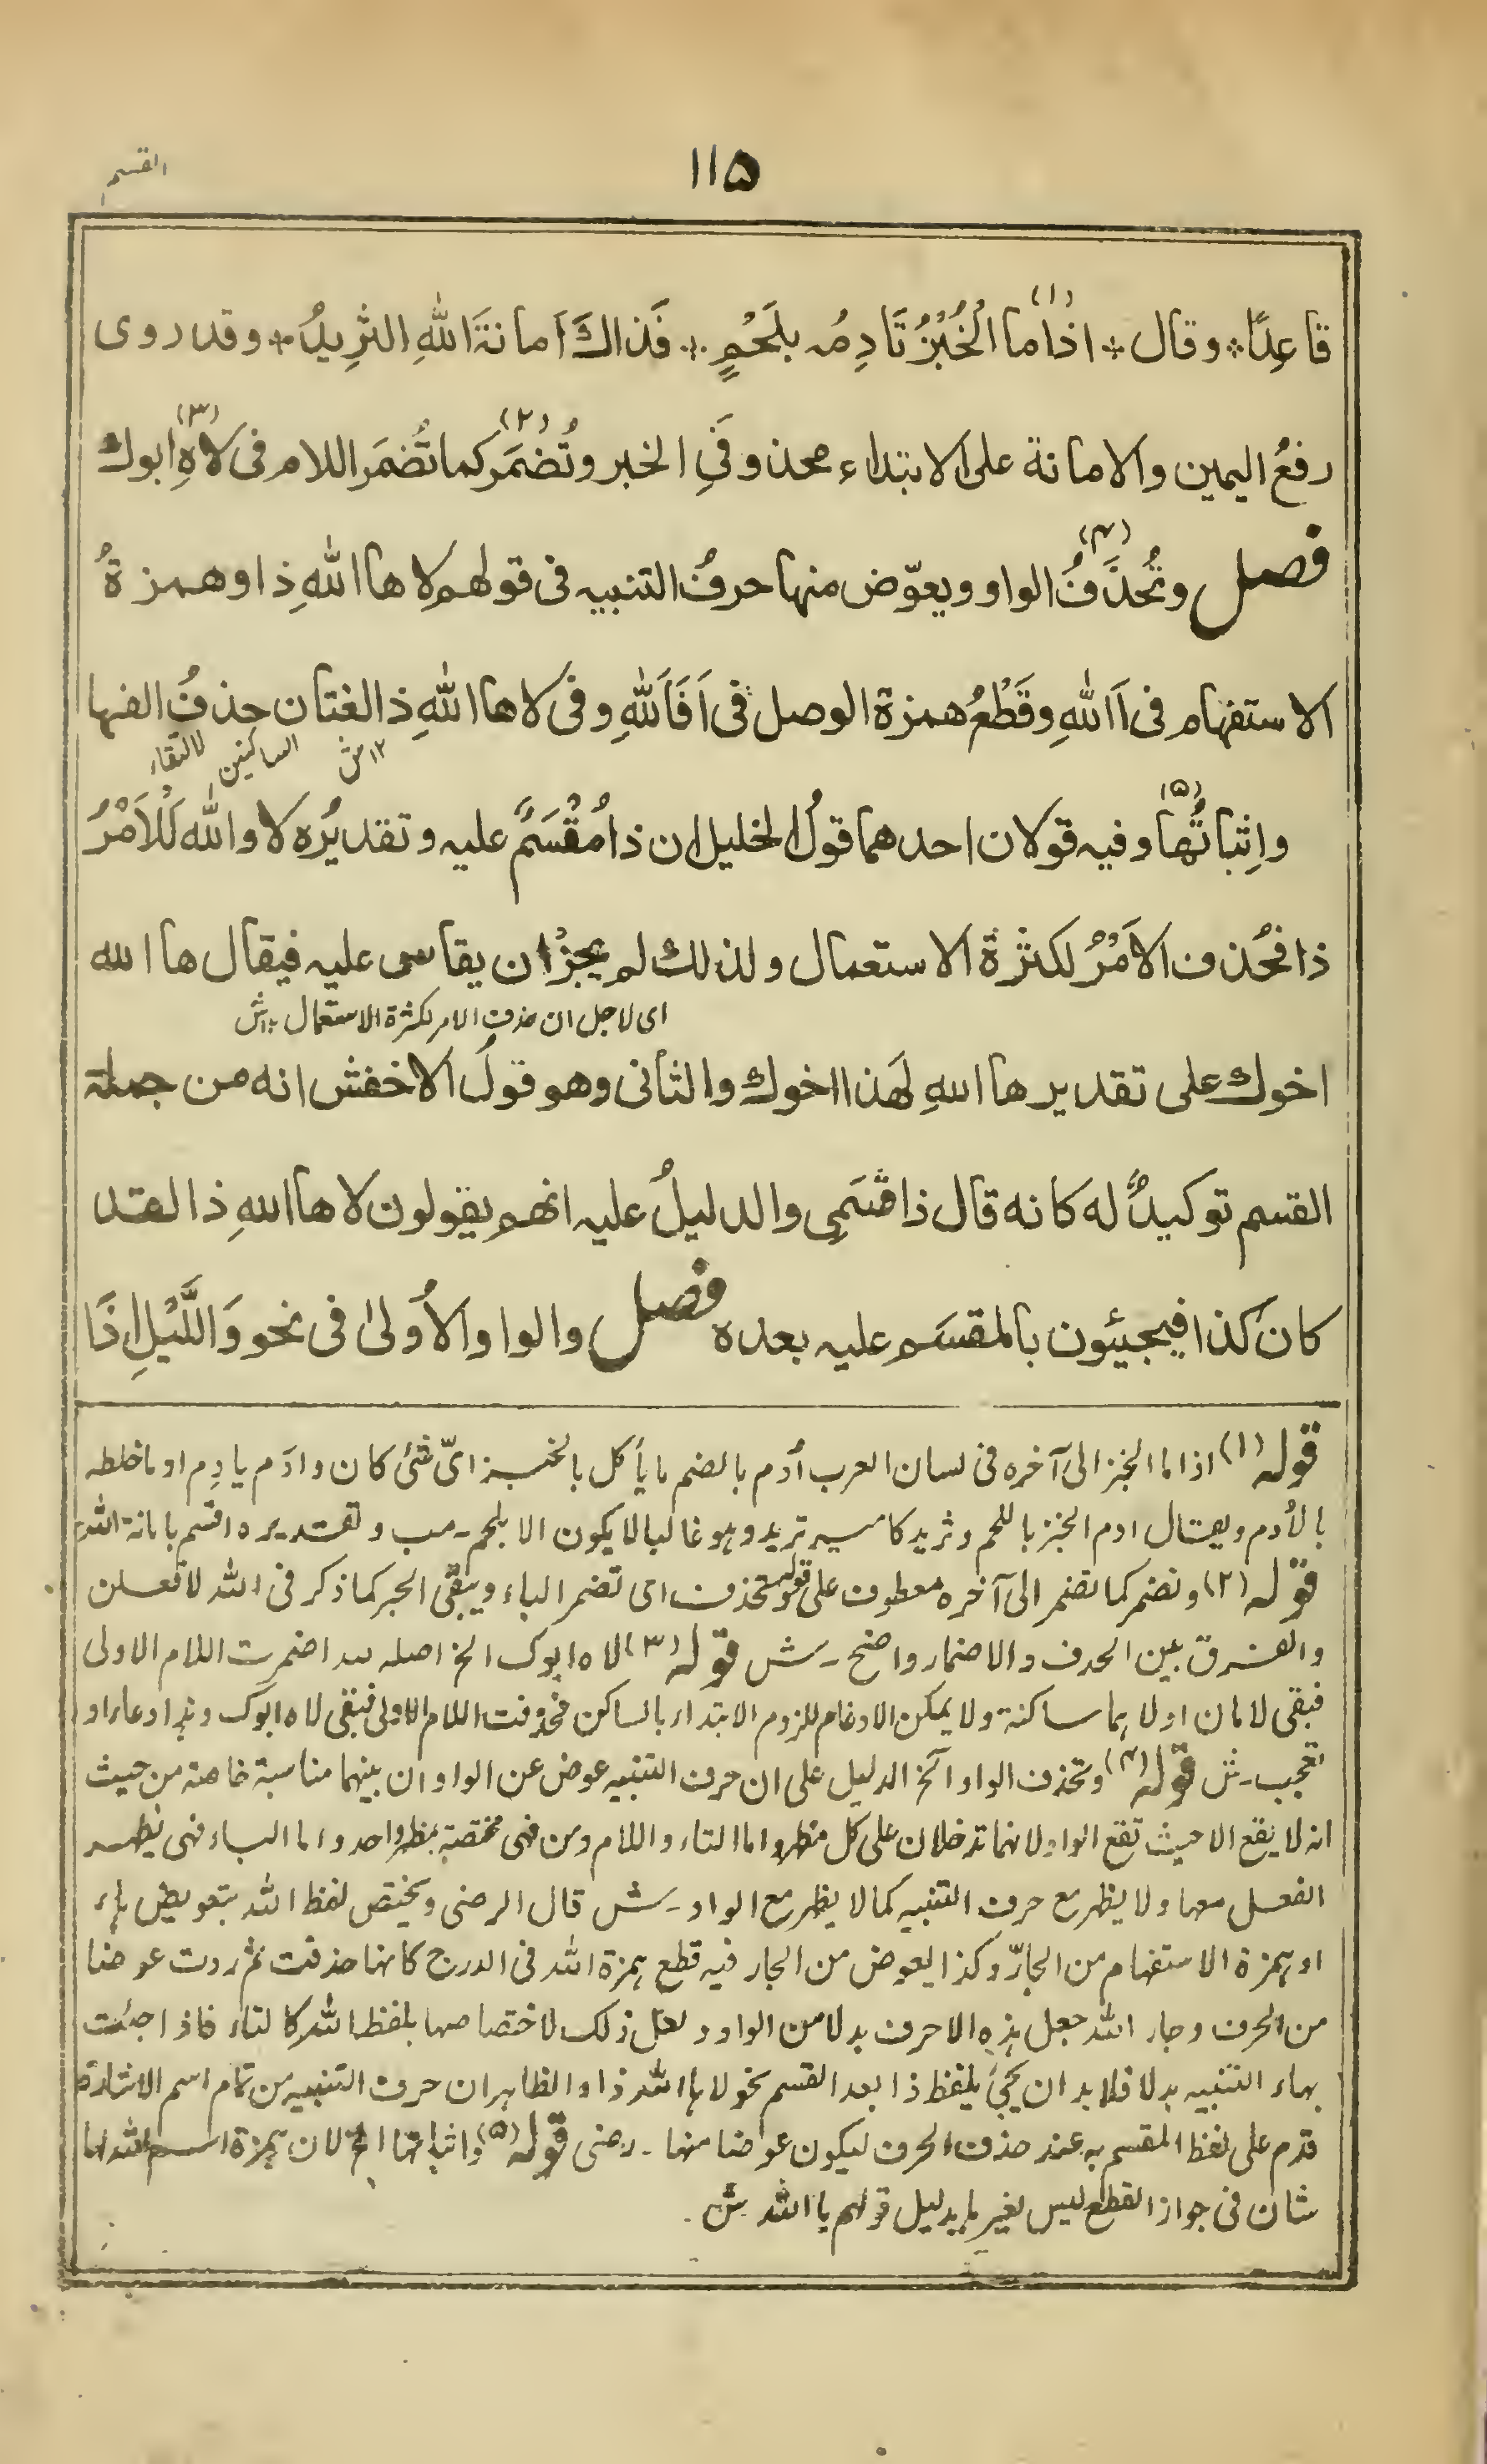 ١١٥
القسم
قاعِدًا * وقال * اذا(١) ما الْخُبْزُ تَادِمُه بِلَحْمٍ * فَذاكَ اَمانةَ اللهِ الثرِيدُ * وقد روى
رفعُ اليمين والامانة على الابتداء محذوفَيِ الخبر وتُضْمَرُ(٢) كما تُضمَر اللام فى لاهِ(٣) ابوك
فصل وتُحْذَفُ(٤) الواو ويعوّض منها حرفُ التنبيه فى قولهم لا ها اللهِ ذا وهمزةُ
الاستفهام فى اَاللهِ وقَطْعُ همزة الوصل فى اَفَاَللهِ وفى لا ها اللهِ ذا لغتان حذفُ الفها
لالتقاء الساكنين ١٢ش
واِثباتُها(٥) وفيه قولان احدهما قولُ الخليل ان ذا مُقْسَمٌ عليه وتقديرُه لا والله لَلْاَمْرُ
ذا فحُذف الاَمْرُ لكثرة الاستعمال ولذلك لم يجزْ ان يقاس عليه فيقال ها الله
اى لاجل ان حذف الامر لكثرة الاستعمال ١٢ش
اخوك على تقدير ها اللهِ لَهذا اخوك والثانى وهو قولُ الاخفش انه من جملة
القسم توكيدٌ له كانه قال ذا قَسَمِى والدليلُ عليه انهم يقولون لا ها اللهِ ذا لقد
كان كذا فيجيئون بالمقسَم عليه بعده فصل والواو الاُولىٰ فى نحو وَاللَّيْلِ اِذَا
قوله (١) اذا ما الخبز الى آخره فى لسان العرب اُدم بالضم ما يأكل بالخبز اىّ شئ كان وادَم يادِم او ما خلطه
بالاُدم ويقال ادم الخبز باللحم وثريد كامير تريد وهو غالبا لا يكون الا بلحم - مب وتقديره اقسم بامانة الله
قوله (٢) وتضمر كما تضمر الى آخره معطوف على قوله تحذف اى تضمر الباء ويبقى الجر كما ذكر فى الله لافعلن
والفرق بين الحذف والاضمار واضح - ش قوله (٣) لاه ابوك الخ اصله لله اضمرت اللام الاولى
فبقى لامان اولاهما ساكنة ولا يمكن الادغام للزوم الابتداء بالساكن فحذفت اللام الاولى فبقى لاه ابوك وهذا دعاء او
تعجب - ش قوله (٤) وتحذف الواو الخ الدليل على ان حرف التنبيه عوض عن الواو ان بينهما مناسبة خاصة من حيث
انه لا يقع الا حيث تقع الواو ولانهما تدخلان على كل مظهر واما التاء واللام ومن فهى مختصة بمظهر واحد واما الباء فهى يظهر
الفعل معها ولا يظهر مع حرف التنبيه كما لا يظهر مع الواو - ش قال الرضى ويختص لفظ الله بتعويض هاء
او همزة الاستفهام من الجارّ وكذا يعوض من الجار فيه قطع همزة الله فى الدرج كانها حذفت ثم ردت عوضا
من الحرف وجار الله جعل هذه الاحرف بدلا من الواو ولعل ذلك لاختصاصها بلفظ الله كالتاء فاذا جئت
بهاء التنبيه بدلا فلابد ان يجئ بلفظ ذا بعد القسم نحو لا ها الله ذا والظاهر ان حرف التنبيه من تمام اسم الاشارة
قدم على لفظ المقسم به عند حذف الحرف ليكون عوضا منها - رضى قوله (٥) واثباتها الخ لان همزة اسم الله لها
شان فى جواز القطع ليس لغيرها بدليل قولهم يا الله ش